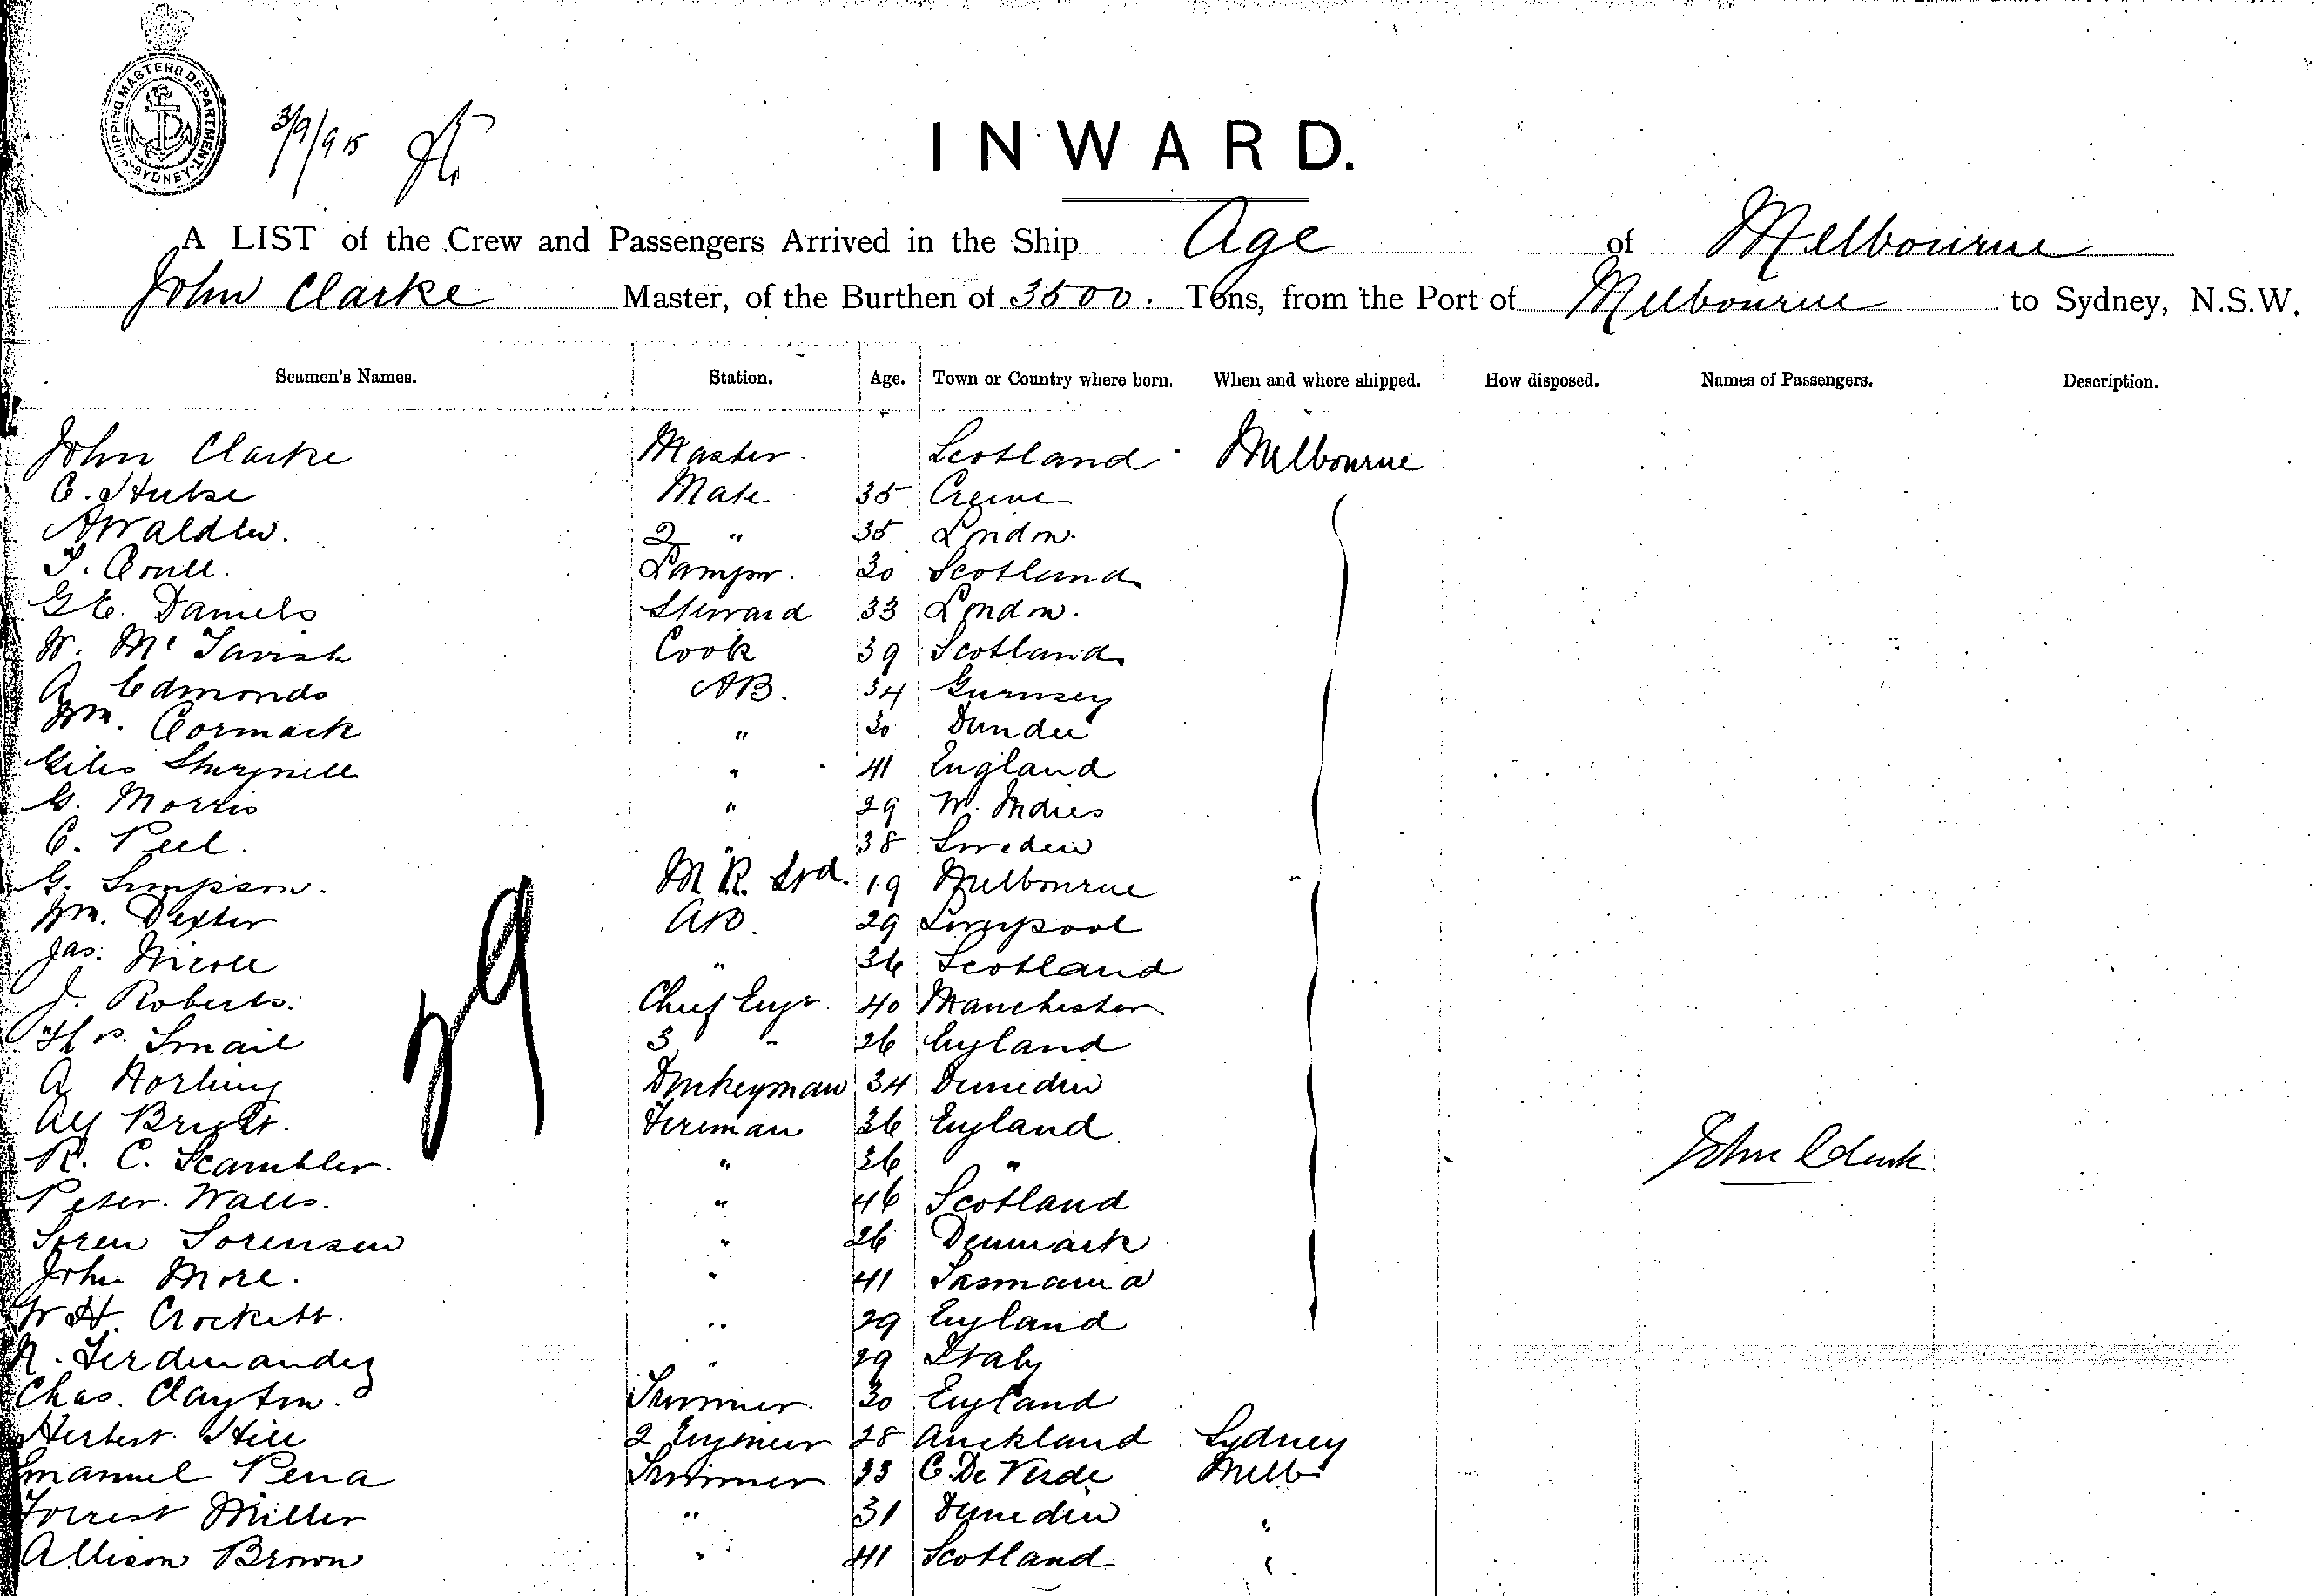 SHIPPING MASTERS DEPARTMENT SYDNEY
3/9/915
INWARD.
A LIST of the Crew and Passengers Arrived in the Ship Age of Melbourne
John Clarke Master, of the Burthen of 3500. Tons, from the Port of Melbourne to Sydney, N.S.W.
Seamen's Names. Station. Age. Town or Country where born. When and where shipped. How disposed. Names of Passengers. Description.
John Clarke Master. Scotland Melbourne
C. Mate 35 Crewe
A 2 " 35 London.
T. Lampr. 30 Scotland
G E. Daniels Steward 33 London.
W. McTavish Cook 39 Scotland
A Edmonds AB. 34 Guernsey
Wm. Cormack " 30 Dundee
Giles " 41 England
G. Morris " 29 W. Indies
C. Peel. " 38 Sweden
G. Simpson. M R Std. 19 Melbourne
Wm. Dexter AB. 29 Liverpool
Jas. Nicoll " 36 Scotland
J. Roberts. Chief Engr. 40 Manchester
Smail 3 " 26 England
A Donkeyman 34 Dunedin
Alf Fireman 36 England
R. C. Scambler. " 36 "
Peter. Watts. " 46 Scotland
Soren Sorensen " 26 Denmark
John More. " 41 Tasmania
W H. Crockett. " 29 England
Ferdinandez " 29 Italy
Chas. Clayton. Trimmer. 30 England
Herbert Hill 2 Engineer 28 Auckland Sydney
Emanuel Pena Trimmer 33 C. De Verde Melb
Forrest Miller " 31 Dunedin "
Allison Brown " 41 Scotland "
John Clark